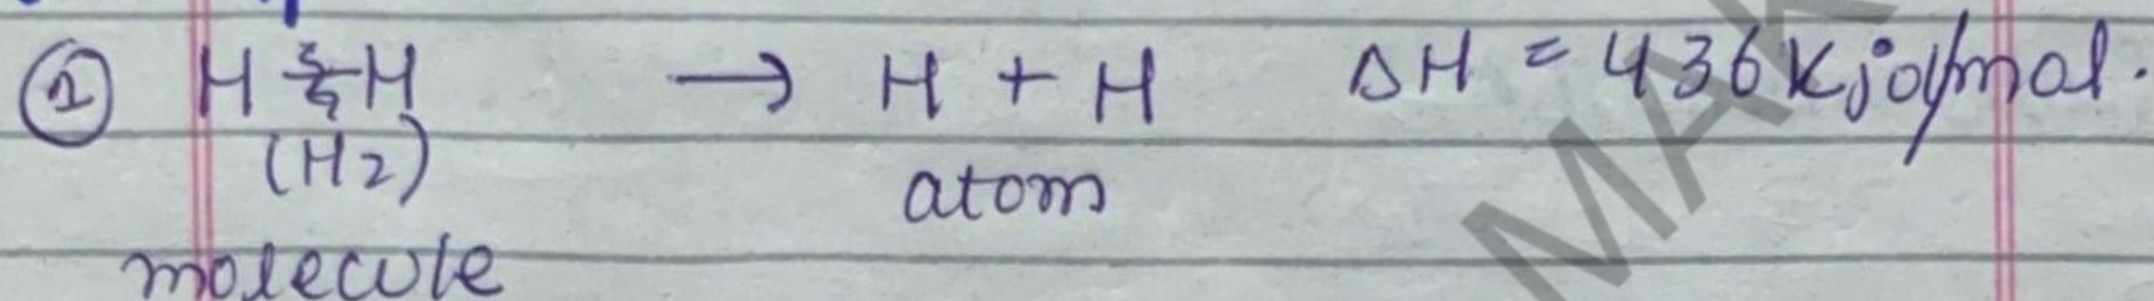 ① H ⌇ H → H + H ΔH = 436 Kjol/mol.
(H2) atom
molecule
MAK